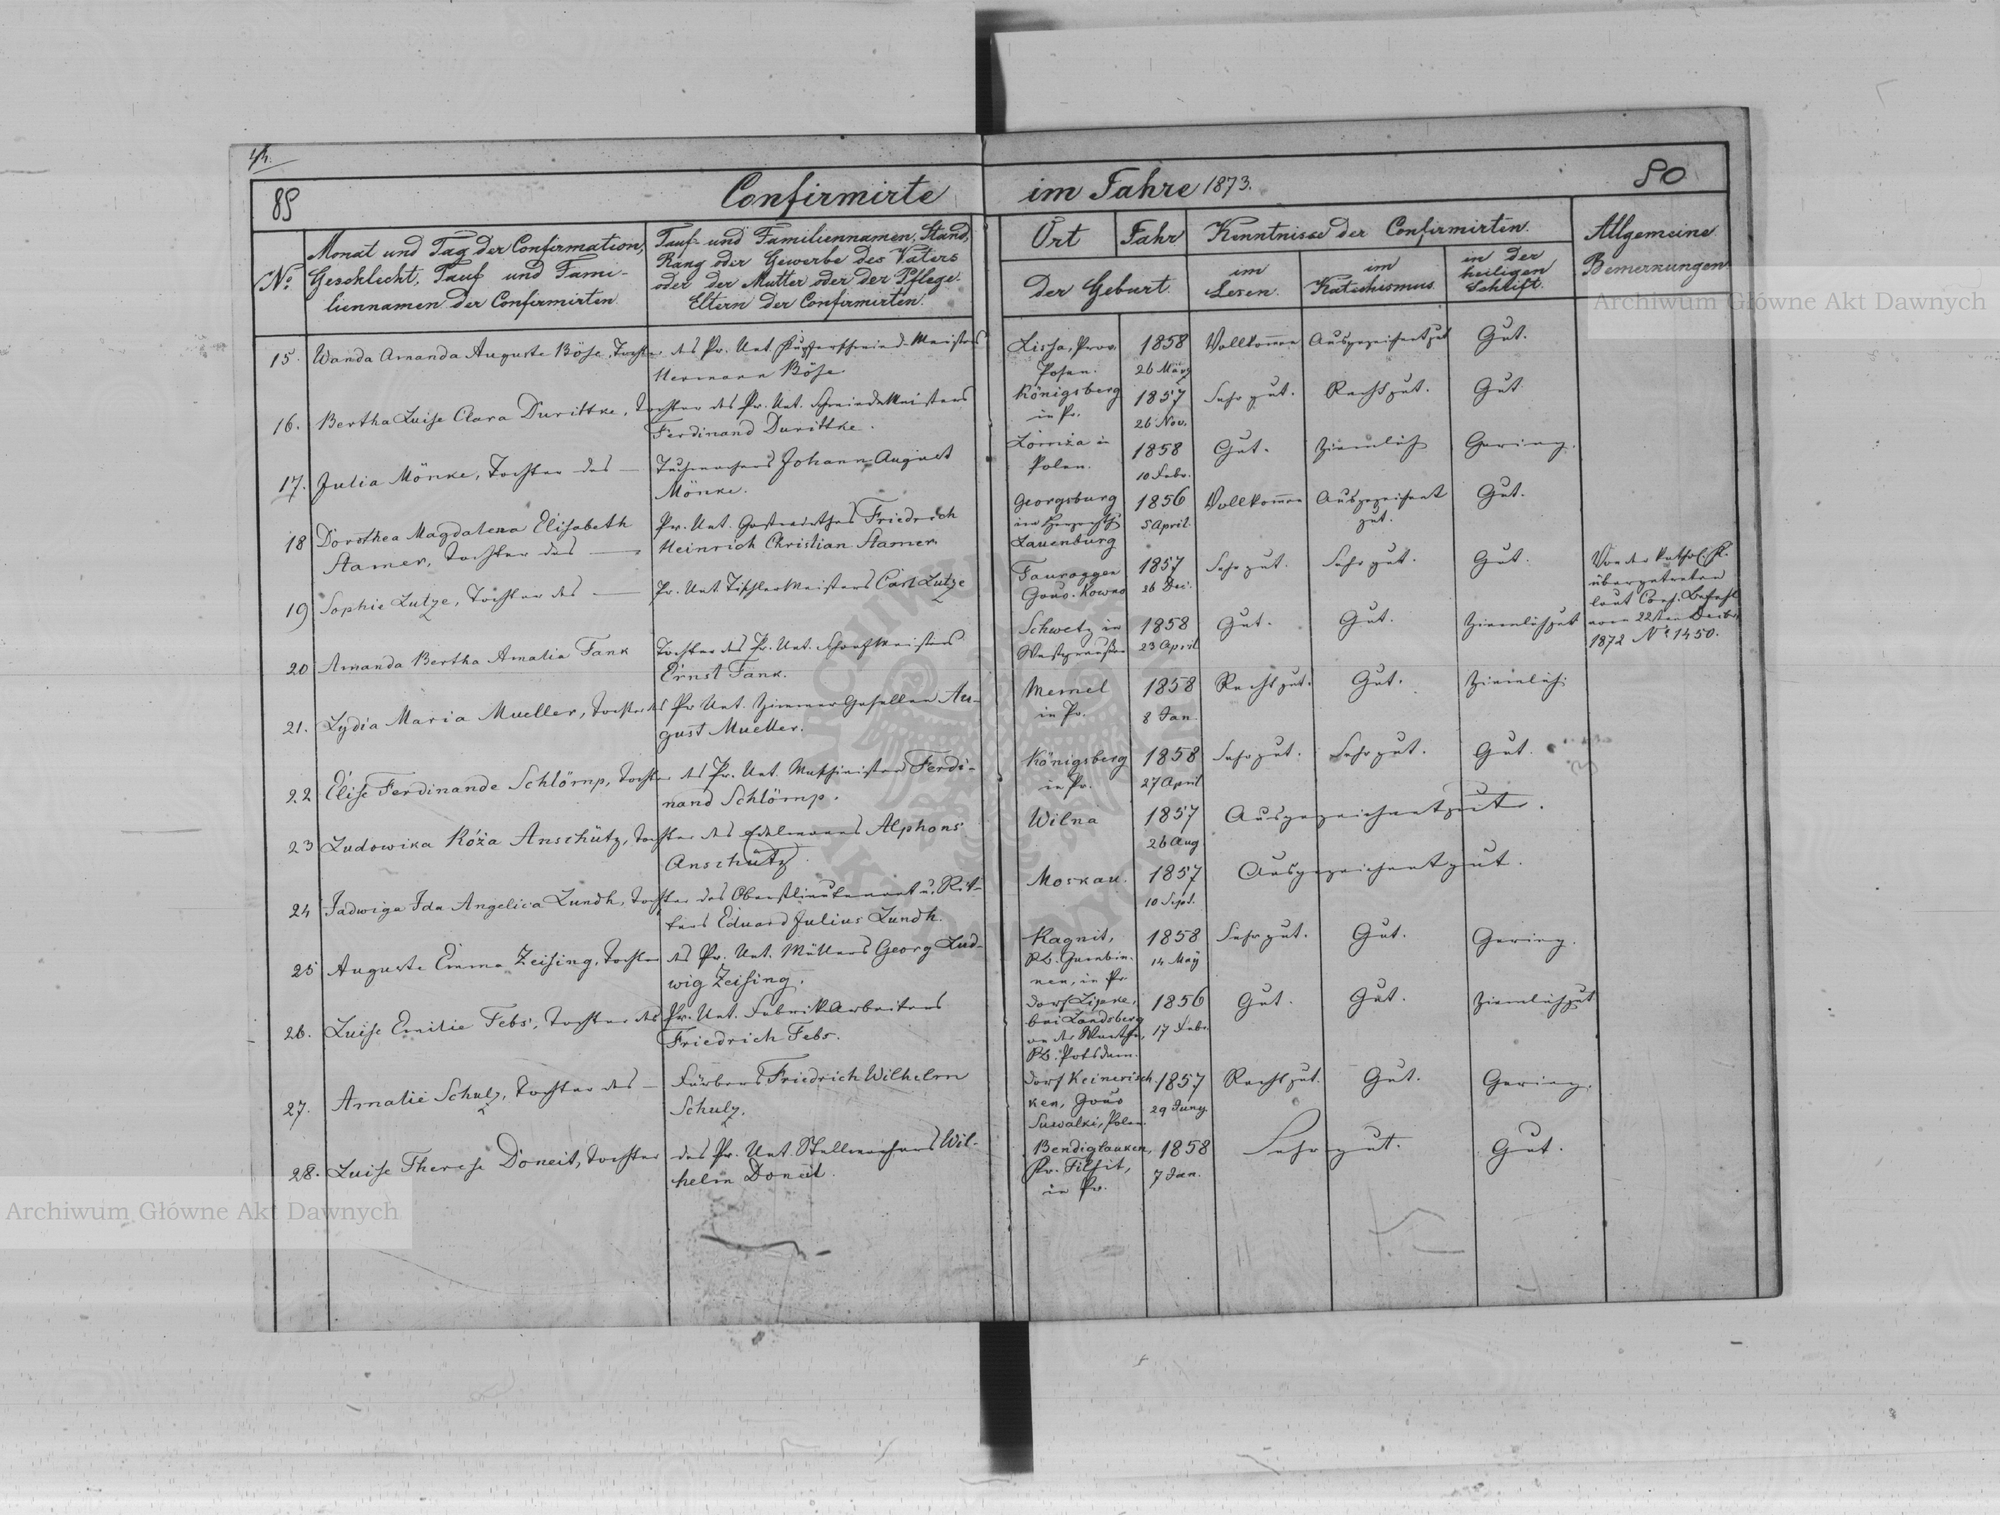 85
Confirmirte im Jahre 1873.
80
No
Monat und Tag der Confirmation,
Geschlecht, Tauf und Fami-
liennamen der Confirmirten.
Tauf- und Familiennamen, Stand,
Rang oder Gewerbe des Vaters
oder der Mutter oder der Pflege-
Eltern der Confirmirten.
Ort
Jahr
Der Geburt.
Kenntnisse der Confirmirten.
im
Lesen.
im
Katechismus.
in der
heiligen
Schrift.
Allgemeine
Bemerkungen
Archiwum Główne Akt Dawnych
15. Wanda Amanda Auguste Böse, Tochter des Pr. Unt. Kupferschmied-Meisters
Hermann Böse.
Lissa, Prov.
Posen.
1858
26 März
Vollkommen
Ausgezeichnet gut
Gut.
16. Bertha Luise Clara Durittke, Tochter des Pr. Unt. Schmiedemeisters
Ferdinand Durittke.
Königsberg
in Pr.
1857
26 Nov.
Sehr gut.
Recht gut.
Gut.
17. Julia Mönke, Tochter des — Tuchmachers Johann August
Mönke.
Łomża in
Polen.
1858
10 Febr.
Gut.
Ziemlich
Gering.
18 Dorothea Magdalena Elisabeth
Stamer, Tochter des —
Pr. Unt. Gastwirthes Friedrich
Heinrich Christian Stamer.
Georgsburg
im
Lauenburg
1856
5 April.
Vollkommen
Ausgezeichnet
gut.
Gut.
19 Sophie Lutze, Tochter des — Pr. Unt. Tischlermeisters Carl Lutze
Tauroggen
Gouv. Kowno
1857
26 Dec.
Sehr gut.
Sehr gut.
Gut.
Von der kathol. K.
übergetreten
laut Cons. Befehl
vom 22sten Decbr.
1872 No 1450.
20 Amanda Bertha Amalia Fank
Tochter des Pr. Unt.
Ernst Fank.
Schwetz in
Westpreußen
1858
23 April
Gut.
Gut.
Ziemlich gut
21. Lydia Maria Mueller, Tochter des Pr. Unt. Zimmer Gesellen Au-
gust Mueller.
Memel
in Pr.
1858
8 Jan.
Recht gut.
Gut.
Ziemlich.
22 Elise Ferdinande Schlömp, Tochter des Pr. Unt. Maschinisten Ferdi-
nand Schlömp.
Königsberg
in Pr.
1858
27 April
Sehr gut.
Sehr gut.
Gut.
23 Ludowika Róża Anschütz, Tochter des Edelmanns Alphons
Anschütz.
Wilna
1857
26 Aug
Ausgezeichnet gut.
24 Jadwiga Ida Angelica Lundh, Tochter des Oberstlieutenant u. Rit-
ters Eduard Julius Lundh.
Moskau.
1857
10 Sept.
Ausgezeichnet gut.
25 Auguste Emma Zeising, Tochter des Pr. Unt. Müllers Georg Lud-
wig Zeising.
Ragnit,
Rb. Gumbin-
nen, in Pr.
1858
14 May
Sehr gut.
Gut.
Gering.
26. Luise Emilie Febs, Tochter des Pr. Unt. Fabrikarbeiters
Friedrich Febs.
Dorf
bei Landsberg
an der Warthe,
Rb. Potsdam.
1856
17 Febr.
Gut.
Gut.
Ziemlich gut
27. Amalie Schulz, Tochter des — Färbers Friedrich Wilhelm
Schulz.
Dorf
ken, Gouv
Suwalki, Polen.
1857
29 Juny.
Recht gut.
Gut.
Gering.
28. Luise Therese Doneit, Tochter des Pr. Unt. Stellmachers Wil-
helm Doneit.
Bendiglauken,
Kr. Tilsit,
in Pr.
1858
7 Jan.
Sehr gut.
Gut.
Archiwum Główne Akt Dawnych